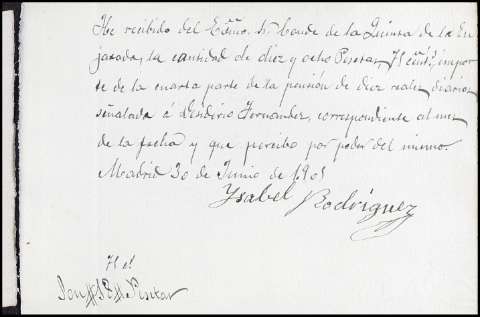 He recibido del Excmo. Sr. Conde de la Quinta de la En
jarada, la cantidad de diez y ocho Pesetas, 75 cénts, impor
te de la cuarta parte de la pensión de diez reales diarios
señalada á Desiderio Fernandez, correspondiente al mes
de la fecha y que percibo por poder del mismo.
Madrid 30 de Junio de 1901
Ysabel Rodríguez
Son 18 Pesetas